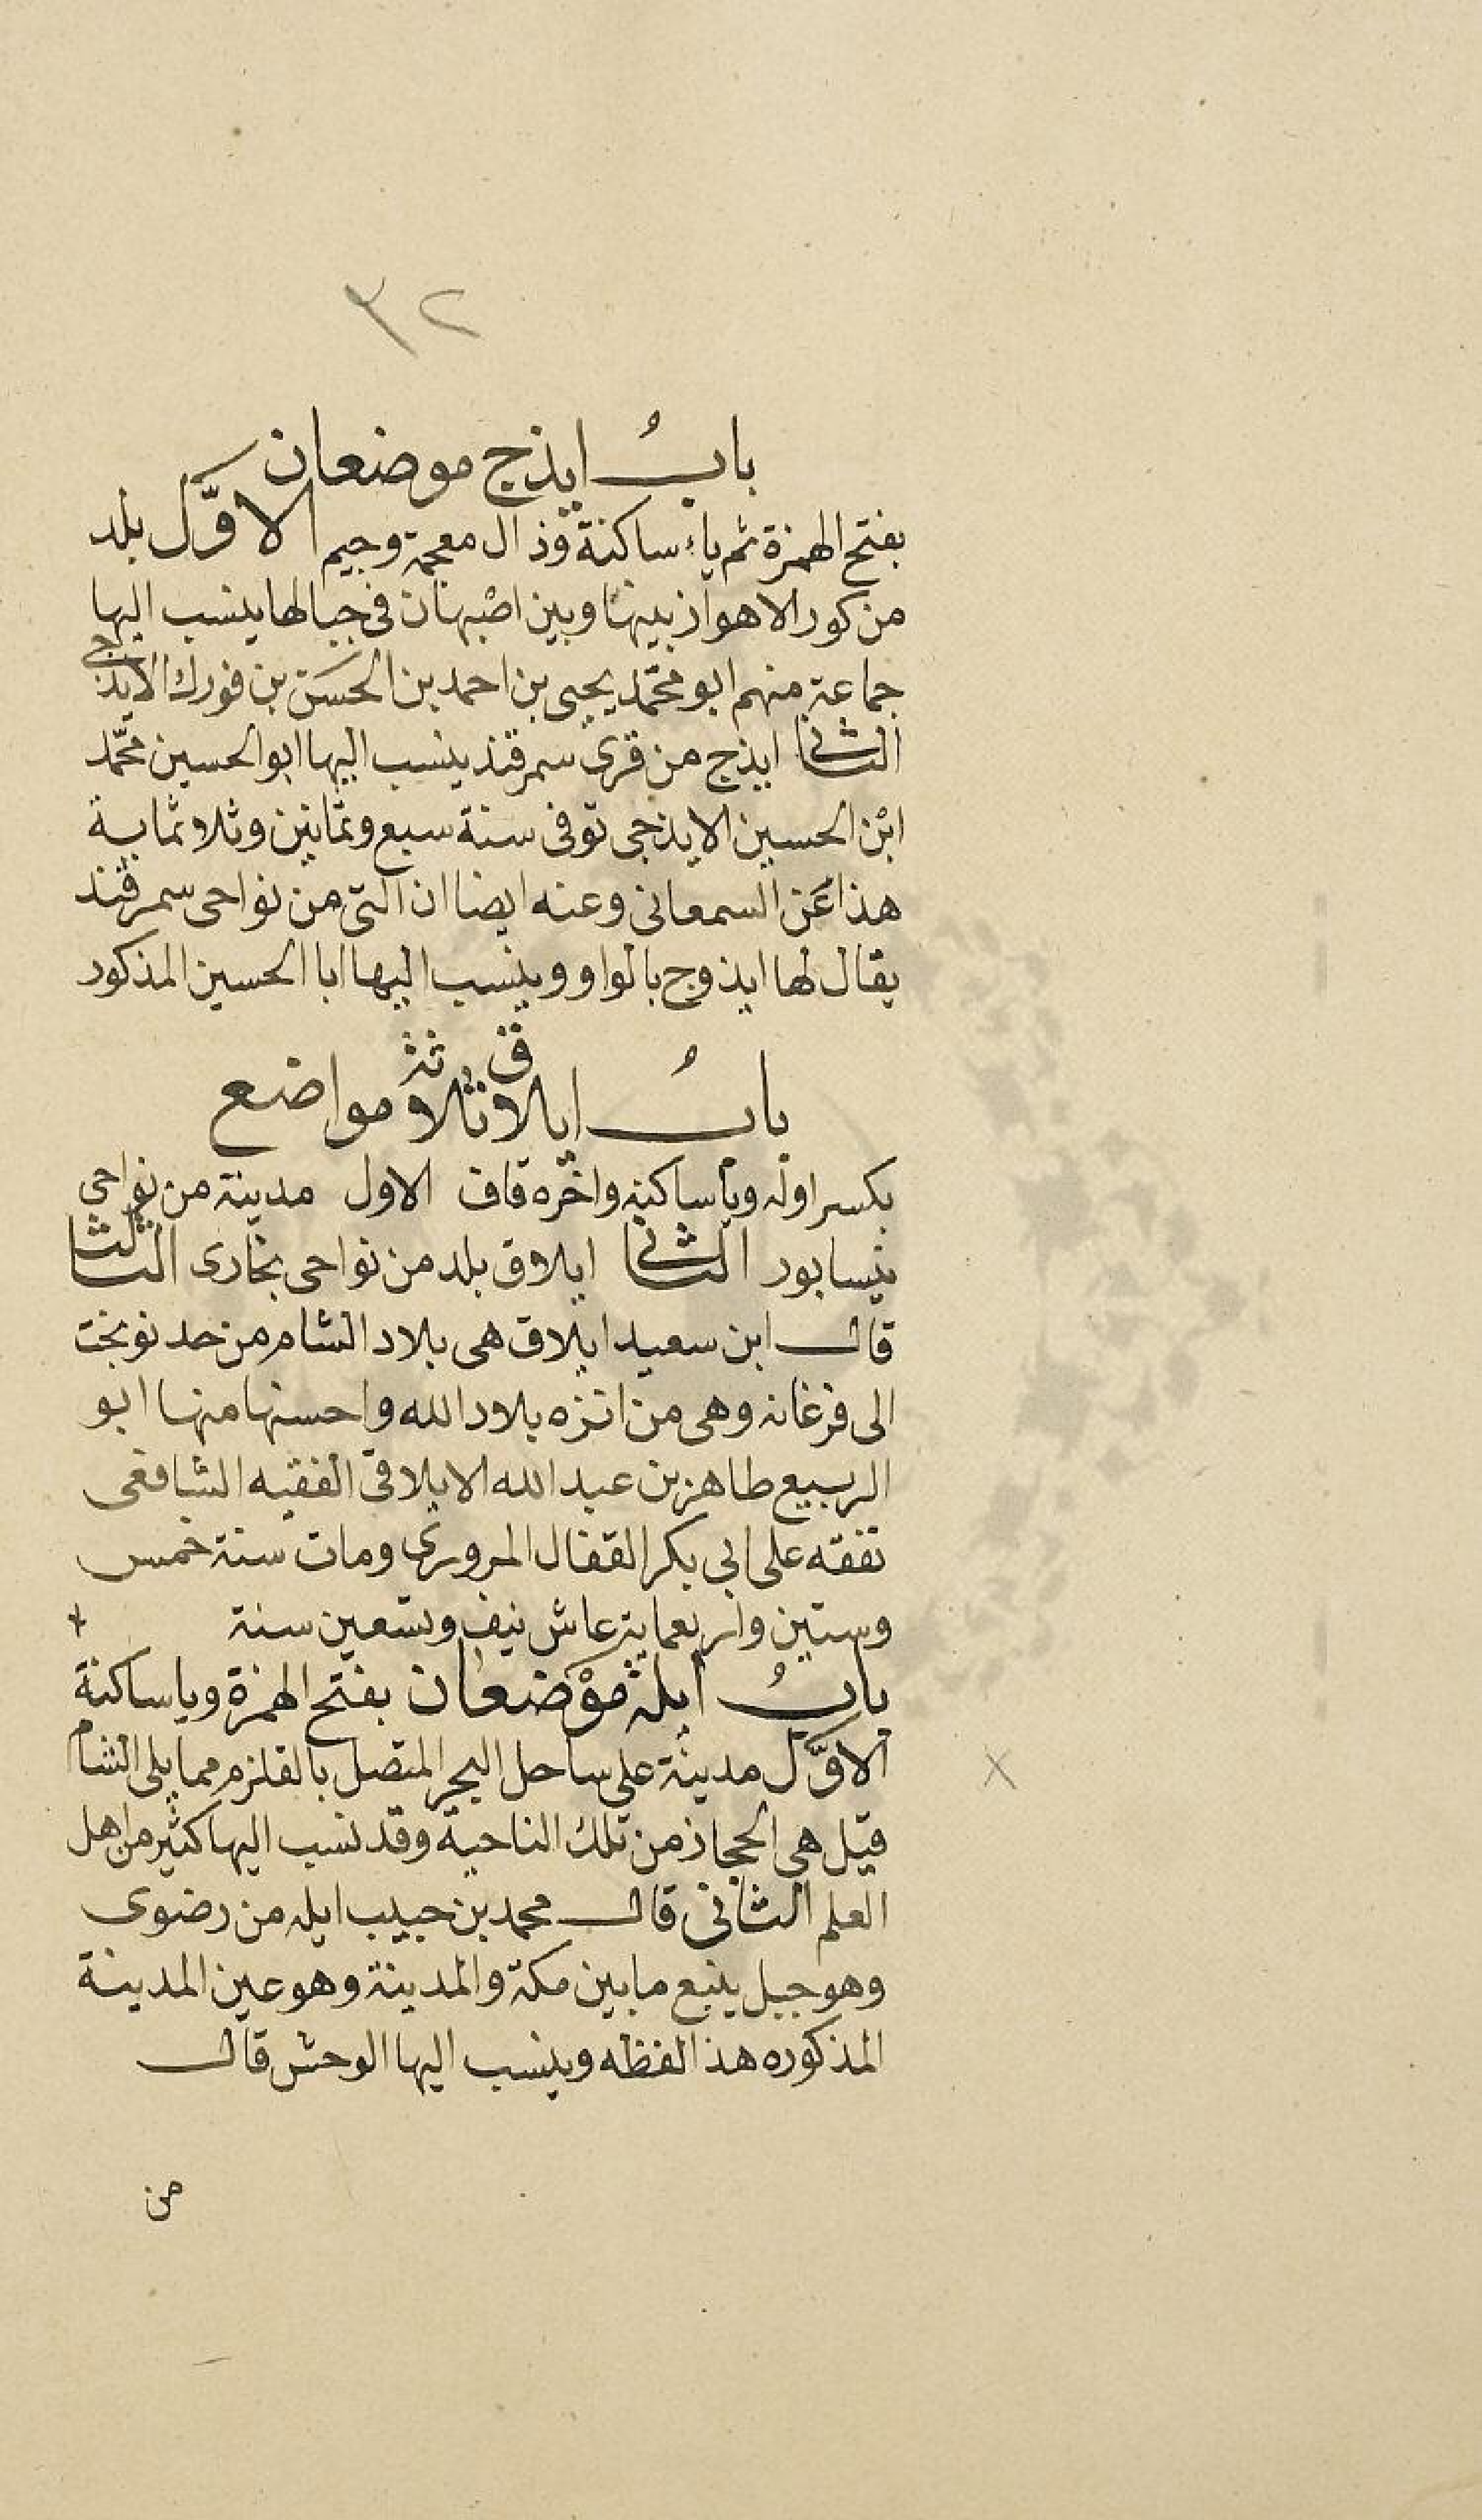 ٣٢
بابُ ايذج موضعان
بفتح الهمزة ثم ياء ساكنة وذال معجمة وجيم الاوَّل بلد
من كور الاهواز بينها وبين اصْبهان فى جبالها ينسب اليها
جماعة منهم ابو محمّد يحيى بن احمد بن الحسَن بن فورك الايذجى
الثانى ايذج من قرى سمرقند ينسب اليها ابو الحسين محمّد
ابْن الحسين الايذجى توفى سنة سبع وثمانين وثلاثماية
هذا عَن السمعانى وعنه ايضا ان التى من نواحى سمرقند
يقال لها ايذوج بالواو وينسب اليها ابا الحسين المذكور
بابُ ايلاق ثلاثة مواضع
بكسر اوله ويا ساكنه واخره قاف الاول مدينة من نواحى
نيسابور الثانى ايلاق بلد من نواحى بخارى الثالث
قال ابن سعيد ايلاق هى بلاد الشام من حد نوبخت
الى فرغانه وهى من انزه بلاد الله واحسنها منها ابو
الربيع طاهر بن عبد الله الايلاقى الفقيه الشافعى
تفقه على ابى بكر القفال المروزى ومات سنة خمس
وستين واربعماية عاش نيف وتسعين سنة
بابُ أيلة موْضعان بفتح الهمزة ويا ساكنة
الاوَّل مدينة على ساحل البحر المتصل بالقلزم مما يلى الشام
قيل هى الحجاز من تلك الناحية وقد نسب اليها كثير من اهل
العلم الثانى قال محمد بن حبيب ايله من رضوى
وهو جبل ينبع ما بين مكة والمدينة وهو عين المدينة
المذكوره هذا لفظه وينسب اليها الوحش قال
من